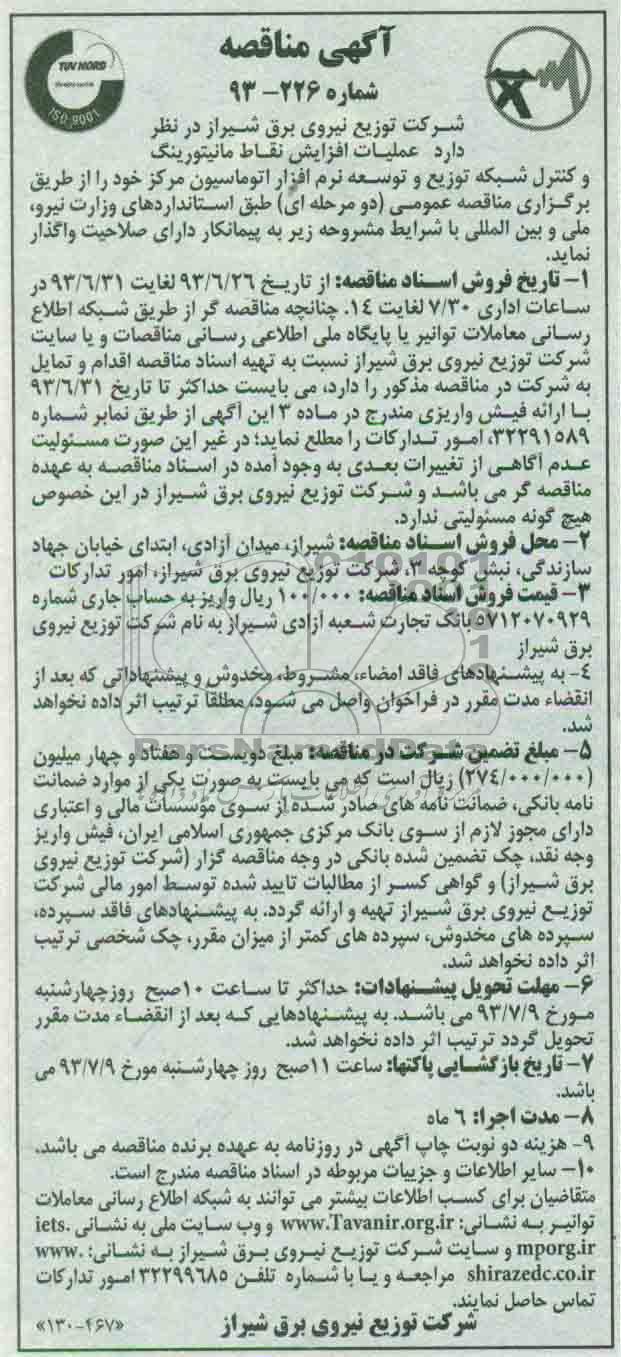 آگهی مناقصه
شماره ۲۲۶- ۹۳
TUV NORD
ISO 9001
شرکت توزیع نیروی برق شیراز در نظر
دارد عملیات افزایش نقاط مانیتورینگ
و کنترل شبکه توزیع و توسعه نرم افزار اتوماسیون مرکز خود را از طریق
برگزاری مناقصه عمومی (دو مرحله ای) طبق استانداردهای وزارت نیرو،
ملی و بین المللی با شرایط مشروحه زیر به پیمانکار دارای صلاحیت واگذار
نماید.
۱- تاریخ فروش اسناد مناقصه: از تاریخ ۹۳/۶/۲۶ لغایت ۹۳/۶/۳۱ در
ساعات اداری ۷/۳۰ لغایت ۱۴. چنانچه مناقصه گر از طریق شبکه اطلاع
رسانی معاملات توانیر یا پایگاه ملی اطلاعی رسانی مناقصات و یا سایت
شرکت توزیع نیروی برق شیراز نسبت به تهیه اسناد مناقصه اقدام و تمایل
به شرکت در مناقصه مذکور را دارد، می بایست حداکثر تا تاریخ ۹۳/۶/۳۱
با ارائه فیش واریزی مندرج در ماده ۳ این آگهی از طریق نمابر شماره
۳۲۲۹۱۵۸۹، امور تدارکات را مطلع نماید؛ در غیر این صورت مسئولیت
عدم آگاهی از تغییرات بعدی به وجود آمده در اسناد مناقصه به عهده
مناقصه گر می باشد و شرکت توزیع نیروی برق شیراز در این خصوص
هیچ گونه مسئولیتی ندارد.
۲- محل فروش اسناد مناقصه: شیراز، میدان آزادی، ابتدای خیابان جهاد
سازندگی، نبش کوچه ۳، شرکت توزیع نیروی برق شیراز، امور تدارکات
۳- قیمت فروش اسناد مناقصه: ۱۰۰/۰۰۰ ریال واریز به حساب جاری شماره
۵۷۱۲۰۷۰۹۲۹ بانک تجارت شعبه آزادی شیراز به نام شرکت توزیع نیروی
برق شیراز
۴- به پیشنهادهای فاقد امضاء، مشروط، مخدوش و پیشنهاداتی که بعد از
انقضاء مدت مقرر در فراخوان واصل می شود، مطلقا ترتیب اثر داده نخواهد
شد.
ParsNamadData
۵- مبلغ تضمین شرکت در مناقصه: مبلغ دویست و هفتاد و چهار میلیون
(۲۷۴/۰۰۰/۰۰۰) ریال است که می بایست به صورت یکی از موارد ضمانت
نامه بانکی، ضمانت نامه های صادر شده از سوی مؤسسات مالی و اعتباری
دارای مجوز لازم از سوی بانک مرکزی جمهوری اسلامی ایران، فیش واریز
وجه نقد، چک تضمین شده بانکی در وجه مناقصه گزار (شرکت توزیع نیروی
برق شیراز) و گواهی کسر از مطالبات تایید شده توسط امور مالی شرکت
توزیع نیروی برق شیراز تهیه و ارائه گردد. به پیشنهادهای فاقد سپرده،
سپرده های مخدوش، سپرده های کمتر از میزان مقرر، چک شخصی ترتیب
اثر داده نخواهد شد.
۶- مهلت تحویل پیشنهادات: حداکثر تا ساعت ۱۰صبح روزچهارشنبه
مورخ ۹۳/۷/۹ می باشد. به پیشنهادهایی که بعد از انقضاء مدت مقرر
تحویل گردد ترتیب اثر داده نخواهد شد.
۷- تاریخ بازگشایی پاکتها: ساعت ۱۱صبح روز چهارشنبه مورخ ۹۳/۷/۹ می
باشد.
۸- مدت اجرا: ۶ ماه
۹- هزینه دو نوبت چاپ آگهی در روزنامه به عهده برنده مناقصه می باشد.
۱۰- سایر اطلاعات و جزییات مربوطه در اسناد مناقصه مندرج است.
متقاضیان برای کسب اطلاعات بیشتر می توانند به شبکه اطلاع رسانی معاملات
توانیر به نشانی: www.Tavanir.org.ir و وب سایت ملی به نشانی iets.
mporg.ir و سایت شرکت توزیع نیروی برق شیراز به نشانی: www.
shirazedc.co.ir مراجعه و یا با شماره تلفن ۳۲۲۹۹۶۸۵ امور تدارکات
تماس حاصل نمایند.
شرکت توزیع نیروی برق شیراز
«۱۳۰-۴۶۷»